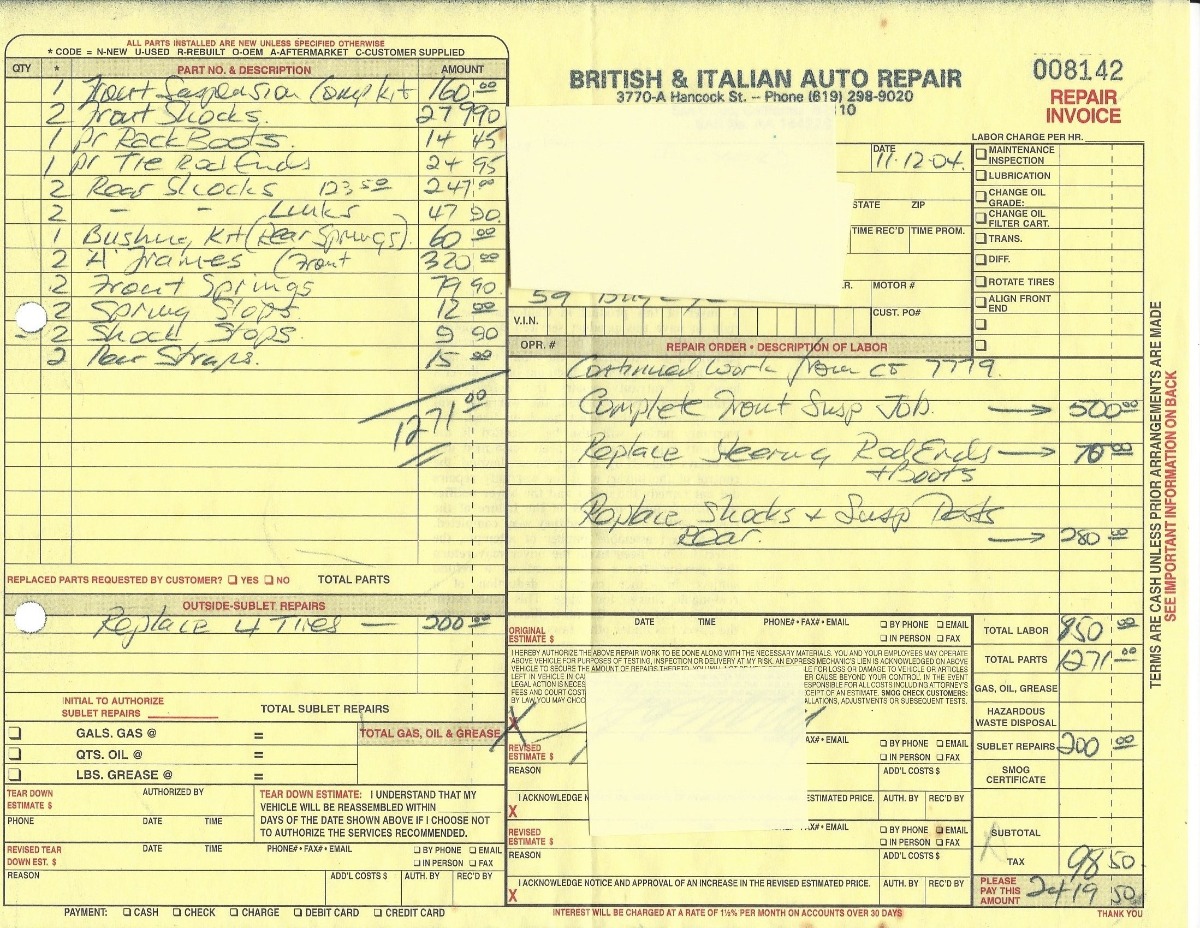 ALL PARTS INSTALLED ARE NEW UNLESS SPECIFIED OTHERWISE
* CODE = N-NEW U-USED R-REBUILT O-OEM A-AFTERMARKET C-CUSTOMER SUPPLIED
QTY * PART NO. & DESCRIPTION AMOUNT
1 Front Suspension Comp Kit 160 00
2 Front Shocks. 279 90
1 pr Rack Boots. 14 45
1 pr Tie Rod Ends 24 95
2 Rear Shocks 123 50 247 00
2 - - Links 47 90.
1 Bushing Kit (Rear Springs). 60 00
2 'A' frames (Front 320 00
2 Front Springs 79 90.
2 Spring Stops. 12 00
2 Shock Stops. 9 90
2 Rear Straps. 15 00
1271 00
REPLACED PARTS REQUESTED BY CUSTOMER? YES NO TOTAL PARTS
OUTSIDE-SUBLET REPAIRS
Replace 4 Tires — 200 00
INITIAL TO AUTHORIZE
SUBLET REPAIRS
TOTAL SUBLET REPAIRS
GALS. GAS @ =
TOTAL GAS, OIL & GREASE
QTS. OIL @ =
LBS. GREASE @ =
TEAR DOWN
ESTIMATE $
AUTHORIZED BY
PHONE DATE TIME
TEAR DOWN ESTIMATE: I UNDERSTAND THAT MY
VEHICLE WILL BE REASSEMBLED WITHIN
DAYS OF THE DATE SHOWN ABOVE IF I CHOOSE NOT
TO AUTHORIZE THE SERVICES RECOMMENDED.
REVISED TEAR
DOWN EST. $
DATE TIME PHONE# • FAX# • EMAIL
BY PHONE EMAIL
IN PERSON FAX
REASON ADD'L COSTS $ AUTH. BY REC'D BY
PAYMENT: CASH CHECK CHARGE DEBIT CARD CREDIT CARD
BRITISH & ITALIAN AUTO REPAIR
3770-A Hancock St. – Phone (619) 298-9020
10
008142
REPAIR
INVOICE
LABOR CHARGE PER HR.
DATE
11-12-04.
STATE ZIP
TIME REC'D TIME PROM.
R. MOTOR #
59
V.I.N.
CUST. PO#
MAINTENANCE
INSPECTION
LUBRICATION
CHANGE OIL
GRADE:
CHANGE OIL
FILTER CART.
TRANS.
DIFF.
ROTATE TIRES
ALIGN FRONT
END
OPR. # REPAIR ORDER • DESCRIPTION OF LABOR
Continued work from CE 7779.
Complete Front Susp Job. → 500 00
Replace Steering Rod Ends → 70 00
+ Boots
Replace Shocks + Susp Parts
Rear. → 280 00
ORIGINAL
ESTIMATE $
DATE TIME PHONE# • FAX# • EMAIL
BY PHONE EMAIL
IN PERSON FAX
I HEREBY AUTHORIZE THE ABOVE REPAIR WORK TO BE DONE ALONG WITH THE NECESSARY MATERIALS. YOU AND YOUR EMPLOYEES MAY OPERATE
ABOVE VEHICLE FOR PURPOSES OF TESTING, INSPECTION OR DELIVERY AT MY RISK. AN EXPRESS MECHANIC'S LIEN IS ACKNOWLEDGED ON ABOVE
VEHICLE TO SECURE THE AMOUNT OF REPAIRS THERETO. FOR LOSS OR DAMAGE TO VEHICLE OR ARTICLES
LEFT IN VEHICLE IN CA ER CAUSE BEYOND YOUR CONTROL. IN THE EVENT
LEGAL ACTION IS NECES RESPONSIBLE FOR ALL COSTS INCLUDING ATTORNEY'S
FEES AND COURT COST CEIPT OF AN ESTIMATE. SMOG CHECK CUSTOMERS:
BY LAW, YOU MAY CHOO ALLATIONS, ADJUSTMENTS OR SUBSEQUENT TESTS.
X
REVISED
ESTIMATE $
FAX# • EMAIL
BY PHONE EMAIL
IN PERSON FAX
REASON ADD'L COSTS $
I ACKNOWLEDGE N ESTIMATED PRICE. AUTH. BY REC'D BY
X
REVISED
ESTIMATE $
FAX# • EMAIL
BY PHONE EMAIL
IN PERSON FAX
REASON ADD'L COSTS $
I ACKNOWLEDGE NOTICE AND APPROVAL OF AN INCREASE IN THE REVISED ESTIMATED PRICE. AUTH. BY REC'D BY
X
TOTAL LABOR 850 00
TOTAL PARTS 1271 00
GAS, OIL, GREASE
HAZARDOUS
WASTE DISPOSAL
SUBLET REPAIRS 200 00
SMOG
CERTIFICATE
SUBTOTAL
TAX 98 50.
PLEASE
PAY THIS
AMOUNT
2419 50
INTEREST WILL BE CHARGED AT A RATE OF 1½% PER MONTH ON ACCOUNTS OVER 30 DAYS
THANK YOU
TERMS ARE CASH UNLESS PRIOR ARRANGEMENTS ARE MADE
SEE IMPORTANT INFORMATION ON BACK